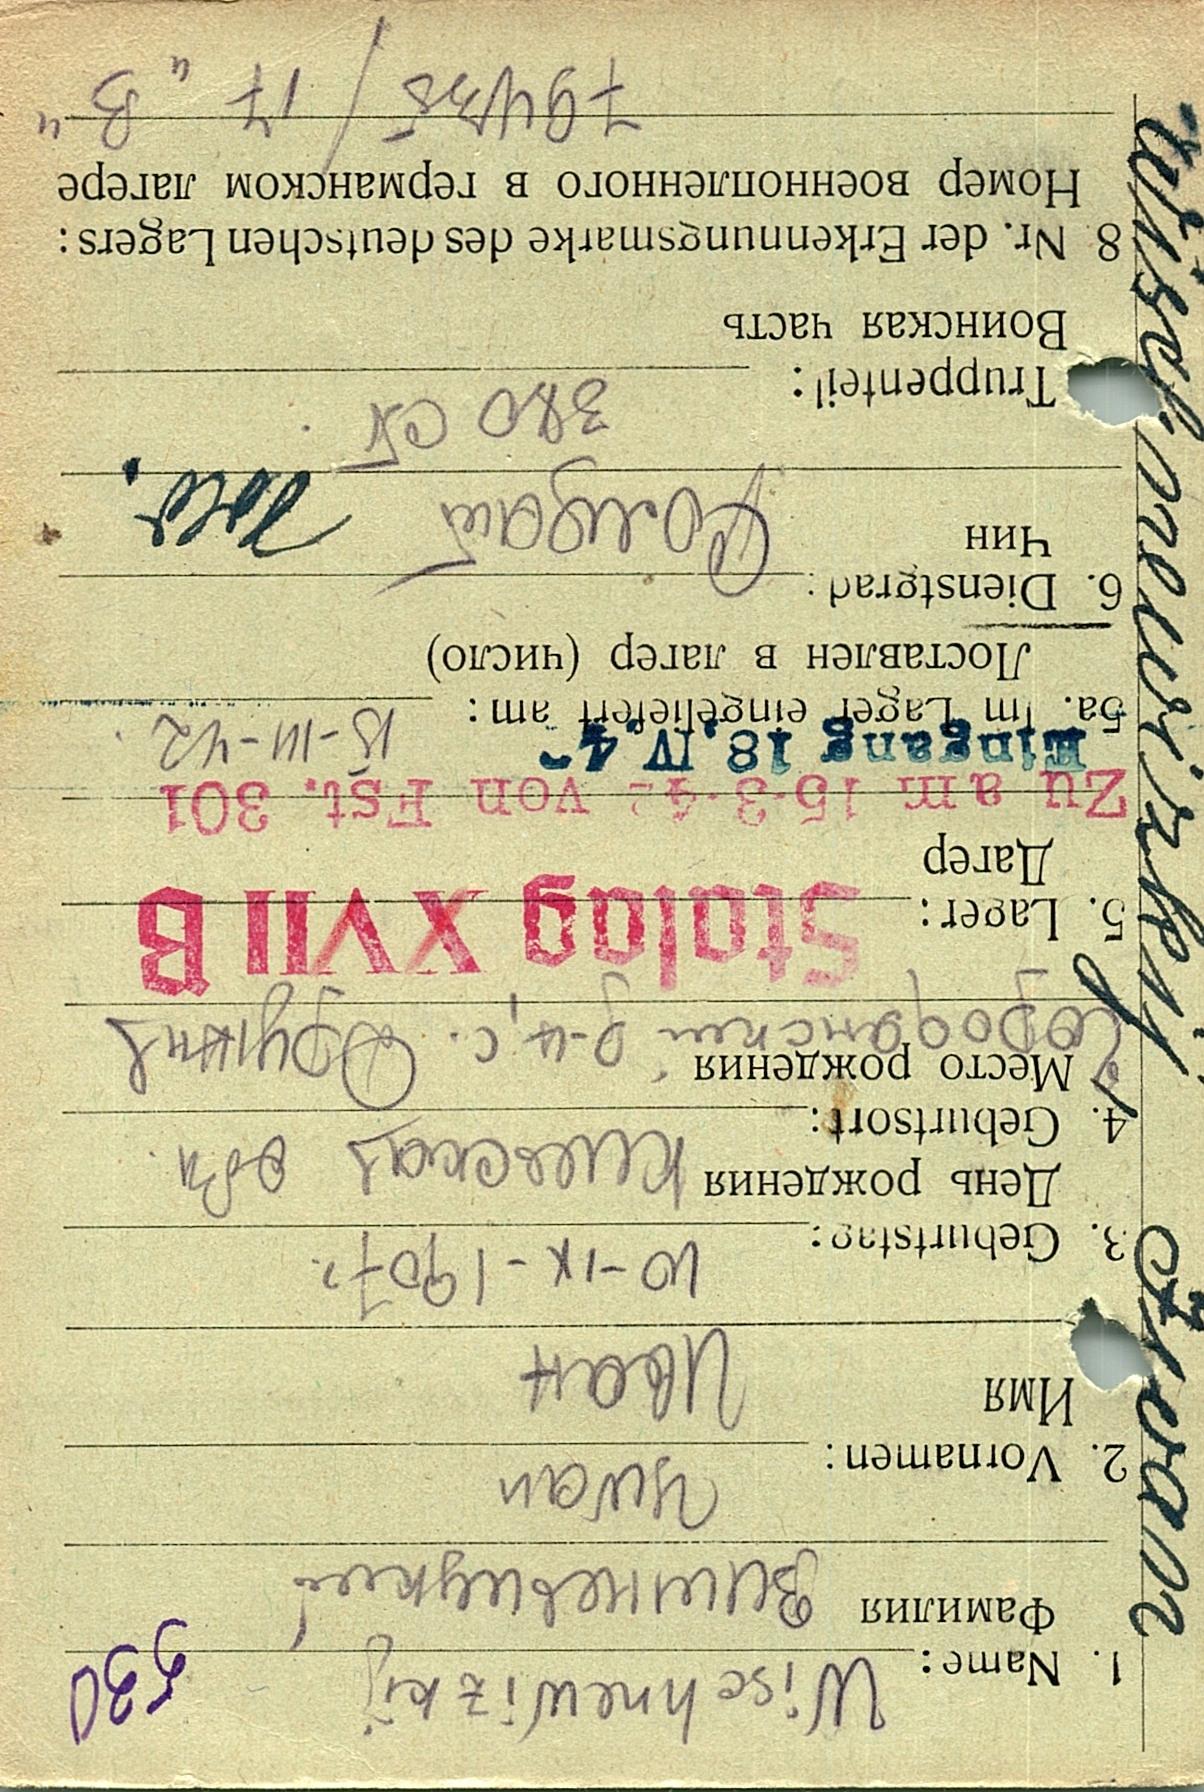 Wischnewizkij Iwan
530
1. Name: Wischnewizkij
Фамилия Вишневицкий
Iwan
2. Vornamen:
Имя Иван
10-IX-1907 г.
3. Geburtstag:
День рождения Киевская обл.
4. Geburtsort:
Место рождения Городянский р-н, с. Дружня
Stalag XVII B
5. Lager:
Лагер
Zu am 15.3.42 von Fst. 301
Eingang 18. IV. 4
5a. Im Lager eingeliefert am: 15-III-42.
Поставлен в лагер (число)
6. Dienstgrad:
Чин Солдат
380 СП
Truppenteil:
Воинская часть
8 Nr. der Erkennungsmarke des deutschen Lagers:
Номер военнопленного в германском лагере
/ 17 „В“